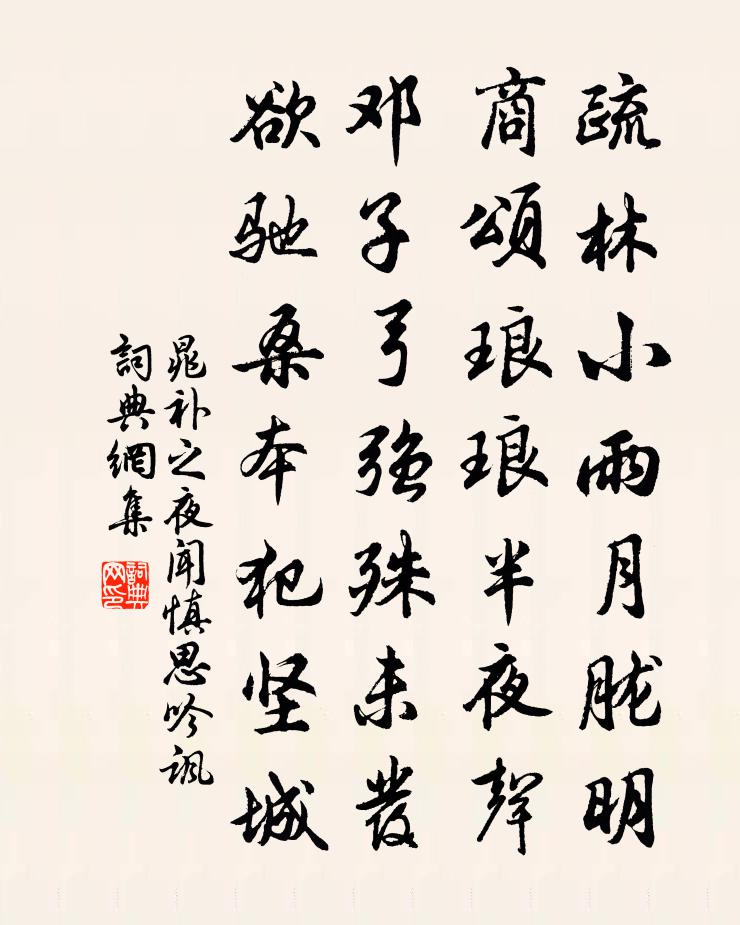 疏林小雨月胧明
商颂琅琅半夜聲
邓子弓强殊未發
欲驰桑本犯坚城
晁补之夜闻慎思吟諷
詞典網集
詞典网印